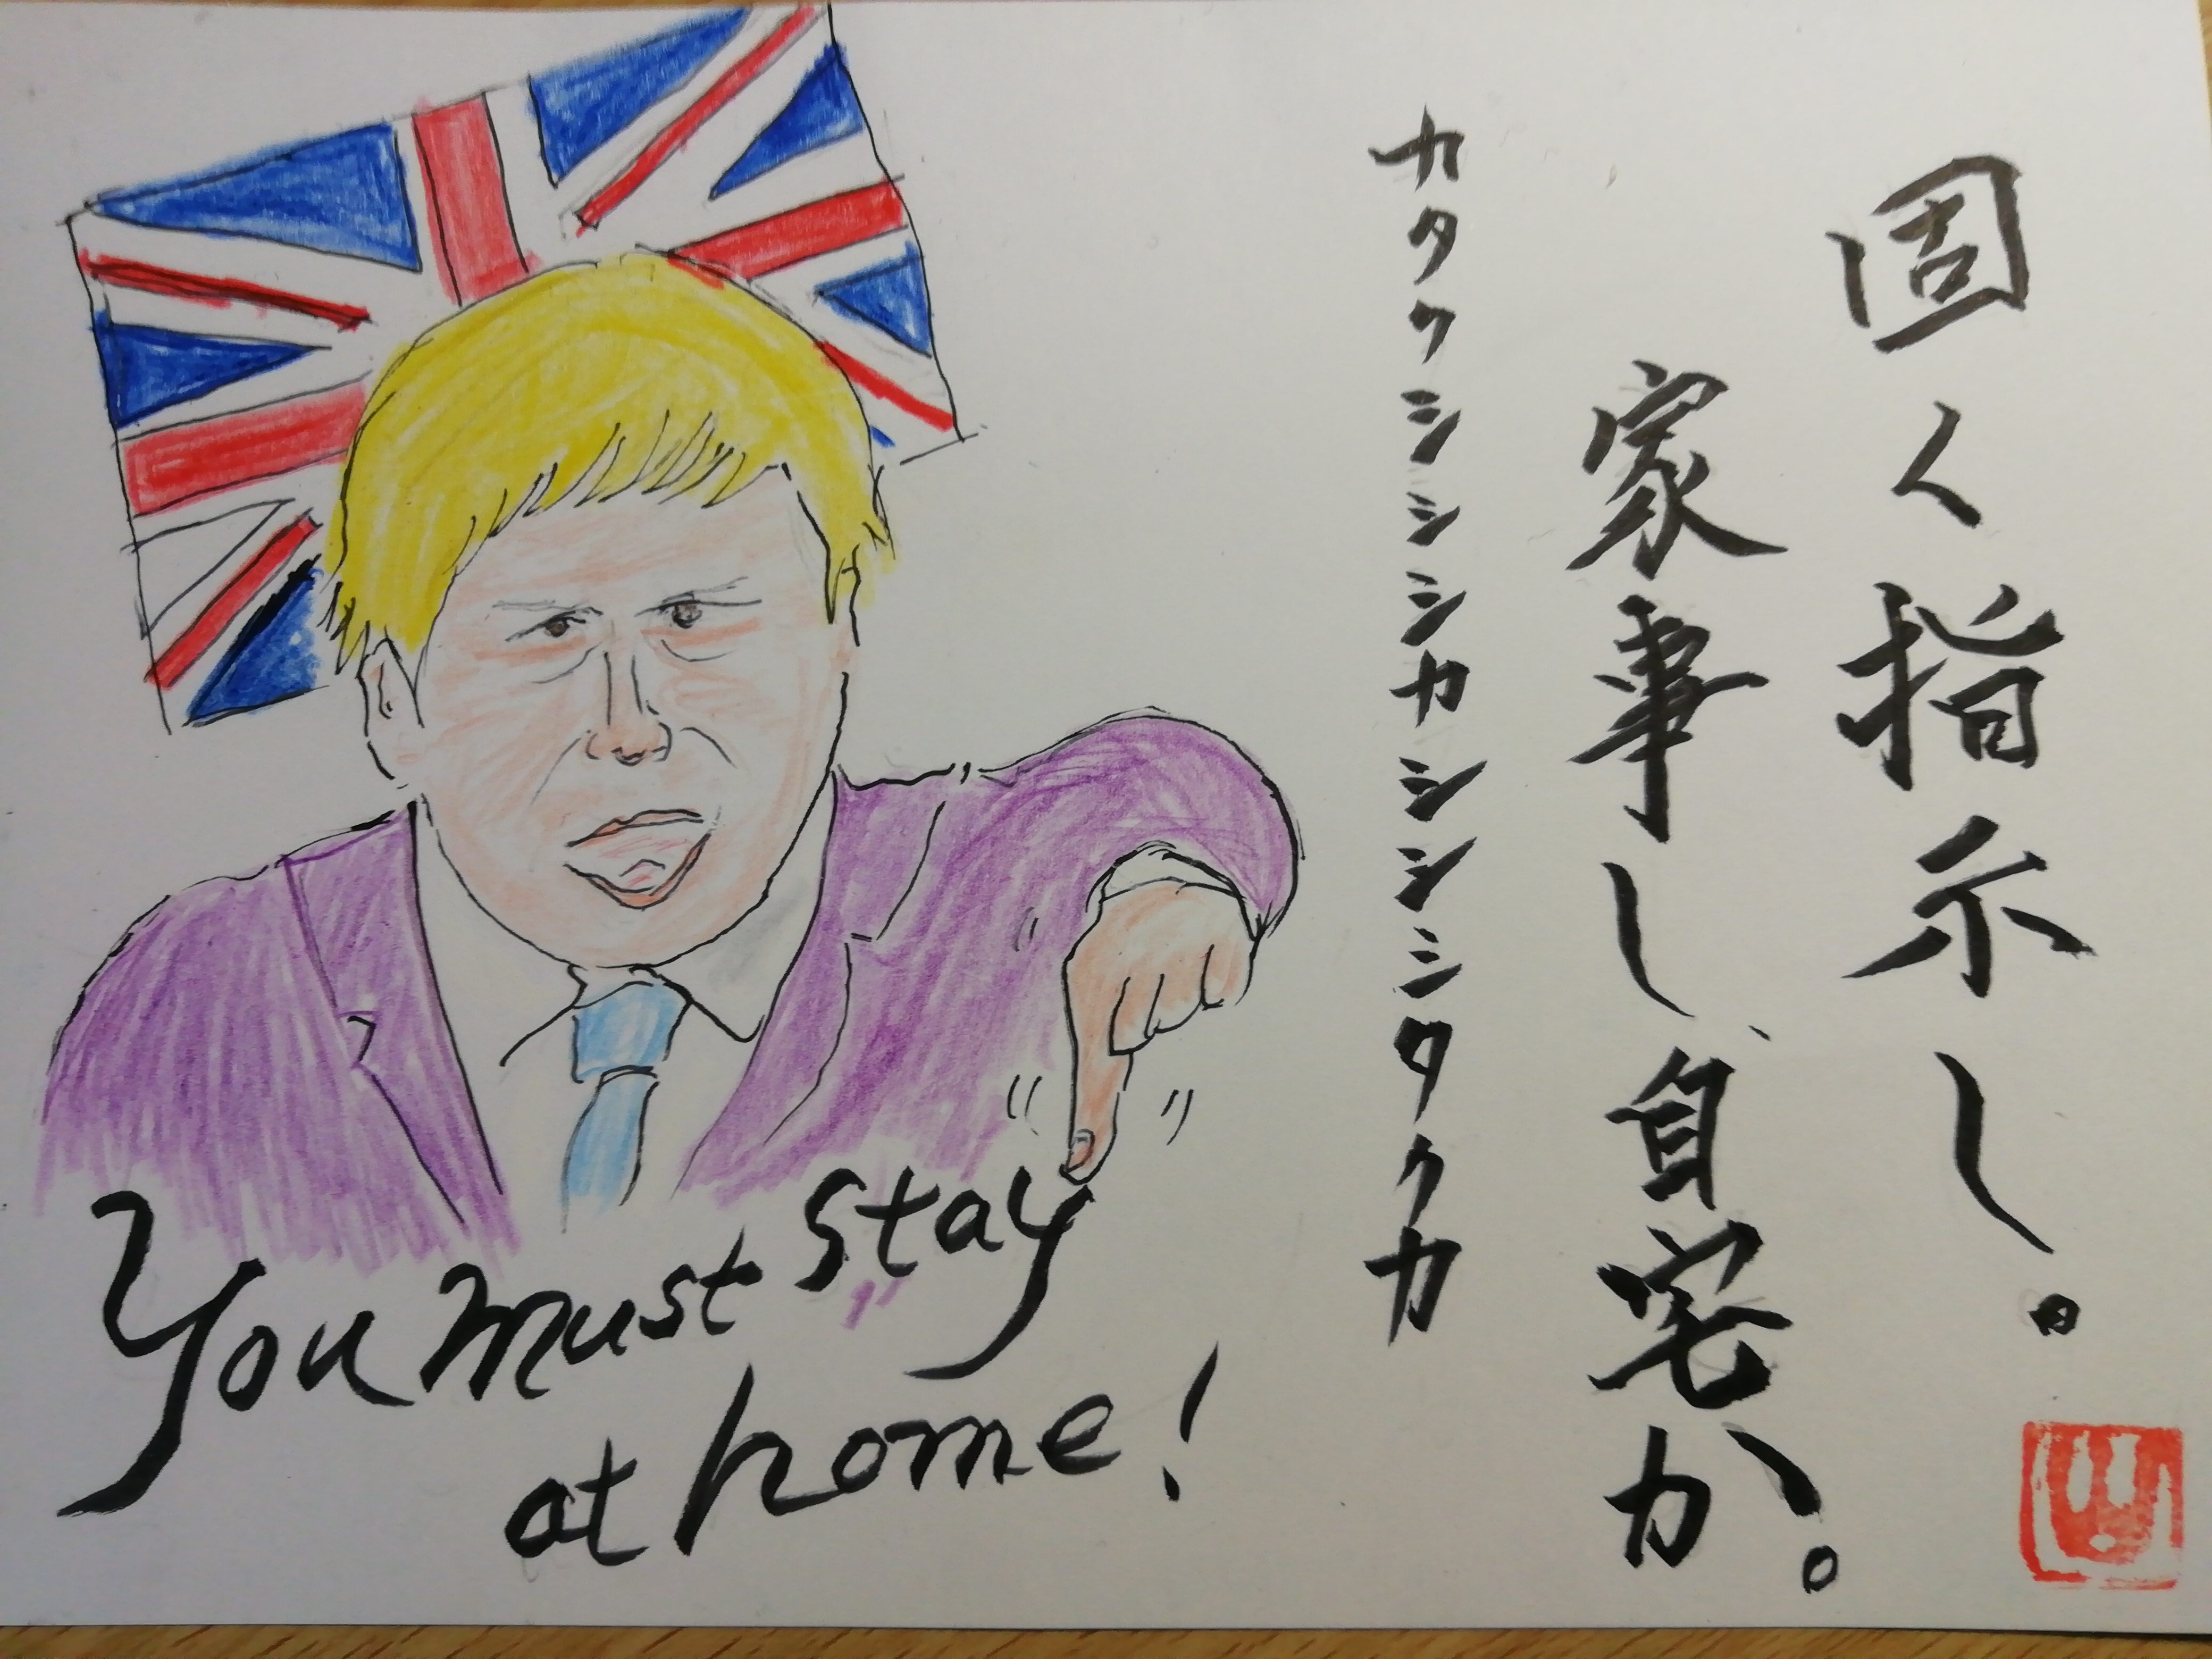 固く指示し。
家事し自宅か。
カタクシシシカシシシタクカ
You must stay
at home!